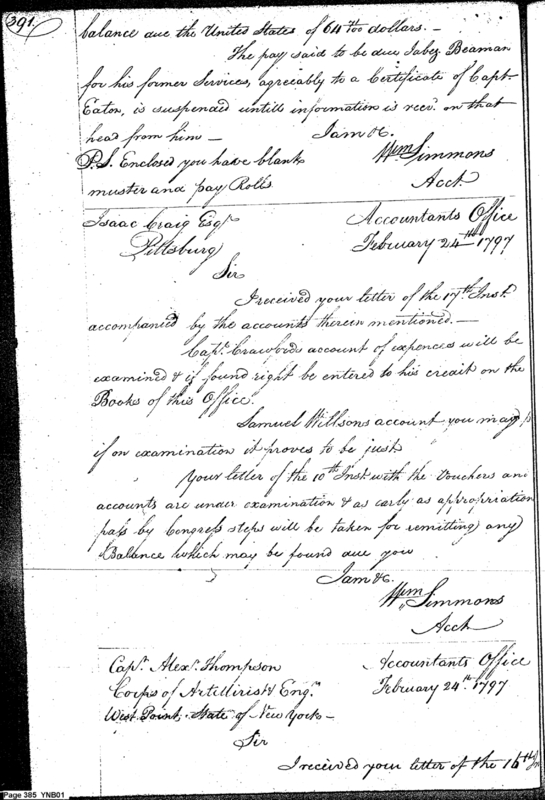 391.
balance due the United States of 64 /100 dollars. —
The pay said to be due Jabez Beaman
for his former Services, agreeably to a Certificate of Capt
Eaton, is suspended untill information is recv. on that
head from him —
I am &c.
P.S. Enclosed you have blank
muster and pay Rolls
Wm Simmons
Acct
Isaac Craig Esqr
Pittsburg
Accountants Office
February 24th 1797
Sir
I received your letter of the 17th Inst.
accompanied by the accounts therein mentioned. —
Capt. Crawfords account of expences will be
examined & if found right be entered to his credit on the
Books of this Office.
Samuel Willsons account you may
if on examination it proves to be just
Your letter of the 10th Inst with the Vouchers an
accounts are under examination & as early as appropriation
pass by Congress steps will be taken for remitting any
Balance which may be found due you
I am &c.
Wm Simmons
Acct
Capt. Alexr. Thompson
Corps of Artillerist & Engrs
West Point, State of New York —
Accountants Office
February 24th 1797
Sir
I received your letter of the 16th In
Page 385 YNB01